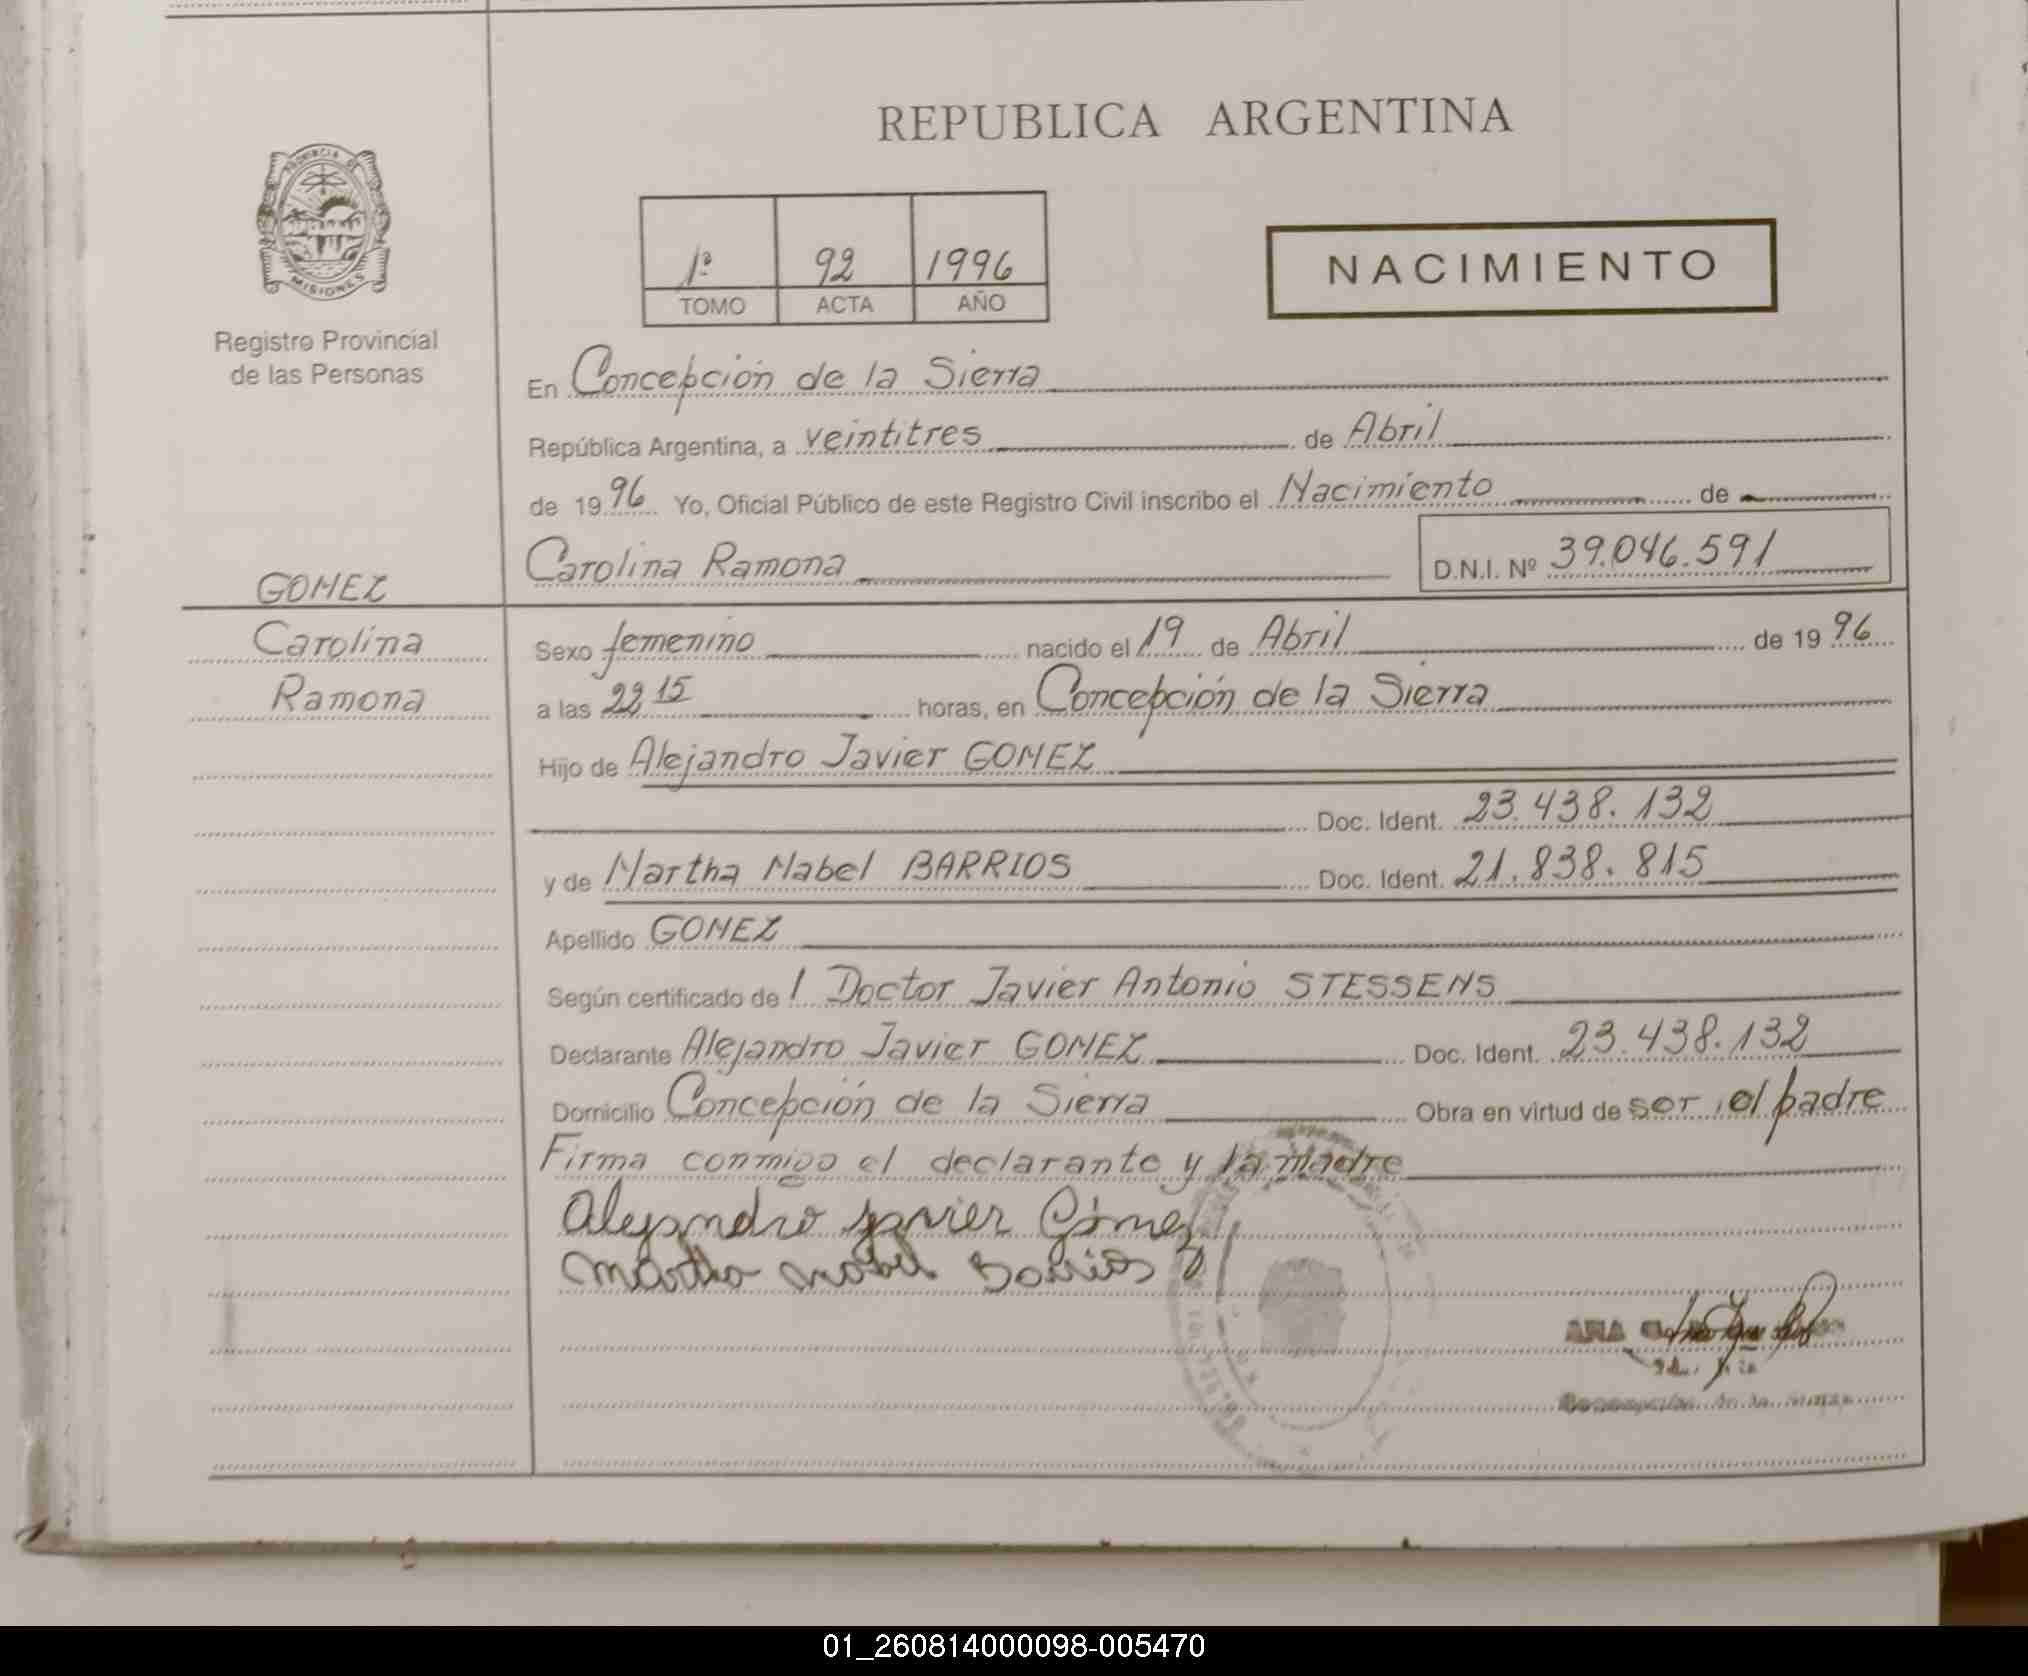 REPUBLICA ARGENTINA
PROVINCIA DE
MISIONES
Registro Provincial
de las Personas
1º 92 1996
TOMO ACTA AÑO
NACIMIENTO
En Concepción de la Sierra
República Argentina, a veintitres de Abril
de 1996 Yo, Oficial Público de este Registro Civil inscribo el Nacimiento de
Carolina Ramona D.N.I. Nº 39.046.591
GOMEZ
Carolina
Ramona
Sexo femenino nacido el 19 de Abril de 1996
a las 22 15 horas, en Concepción de la Sierra
Hijo de Alejandro Javier GOMEZ
Doc. Ident. 23.438.132
y de Martha Mabel BARRIOS Doc. Ident. 21.838.815
Apellido GOMEZ
Según certificado de l Doctor Javier Antonio STESSENS
Declarante Alejandro Javier GOMEZ Doc. Ident. 23.438.132
Domicilio Concepción de la Sierra Obra en virtud de ser el padre
Firma conmigo el declarante y la madre
Alejandro Javier Gómez
Martha Mabel Barrios
ANA
01_260814000098-005470